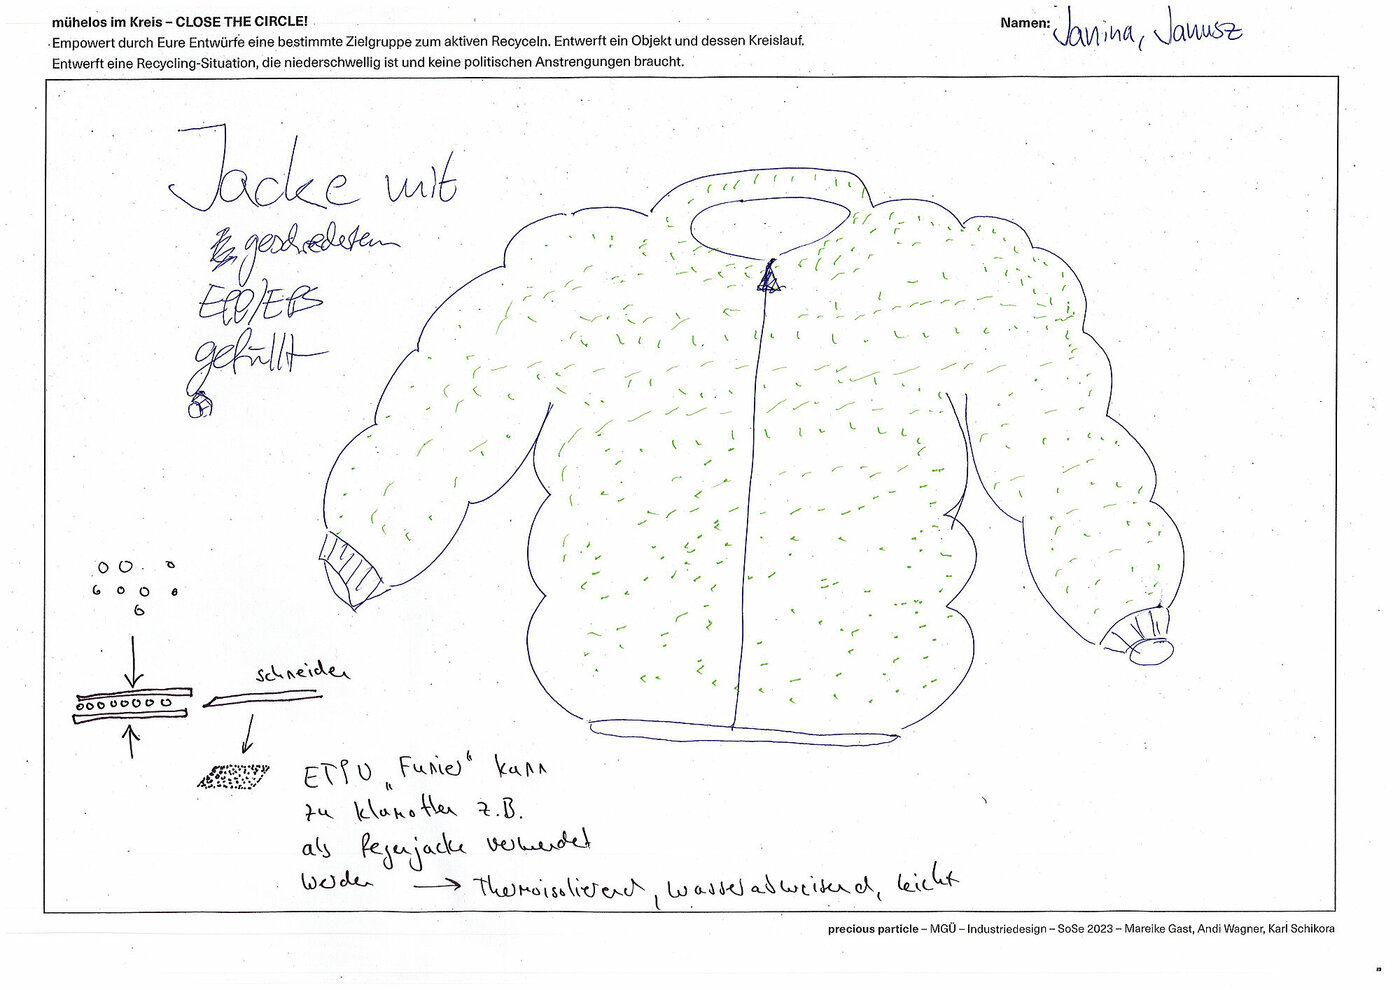 mühelos im Kreis – CLOSE THE CIRCLE!
Empowert durch Eure Entwürfe eine bestimmte Zielgruppe zum aktiven Recyceln. Entwerft ein Objekt und dessen Kreislauf.
Entwerft eine Recycling-Situation, die niederschwellig ist und keine politischen Anstrengungen braucht.
Namen: Janina, Janusz
Jacke mit
EPP/EPS
gefüllt
schneiden
ETPU „Funier“ kann
zu Klamotten z.B.
als Regenjacke verwendet
werden → Thermoisolierend, wasserabweisend, leicht
precious particle – MGÜ – Industriedesign – SoSe 2023 – Mareike Gast, Andi Wagner, Karl Schikora